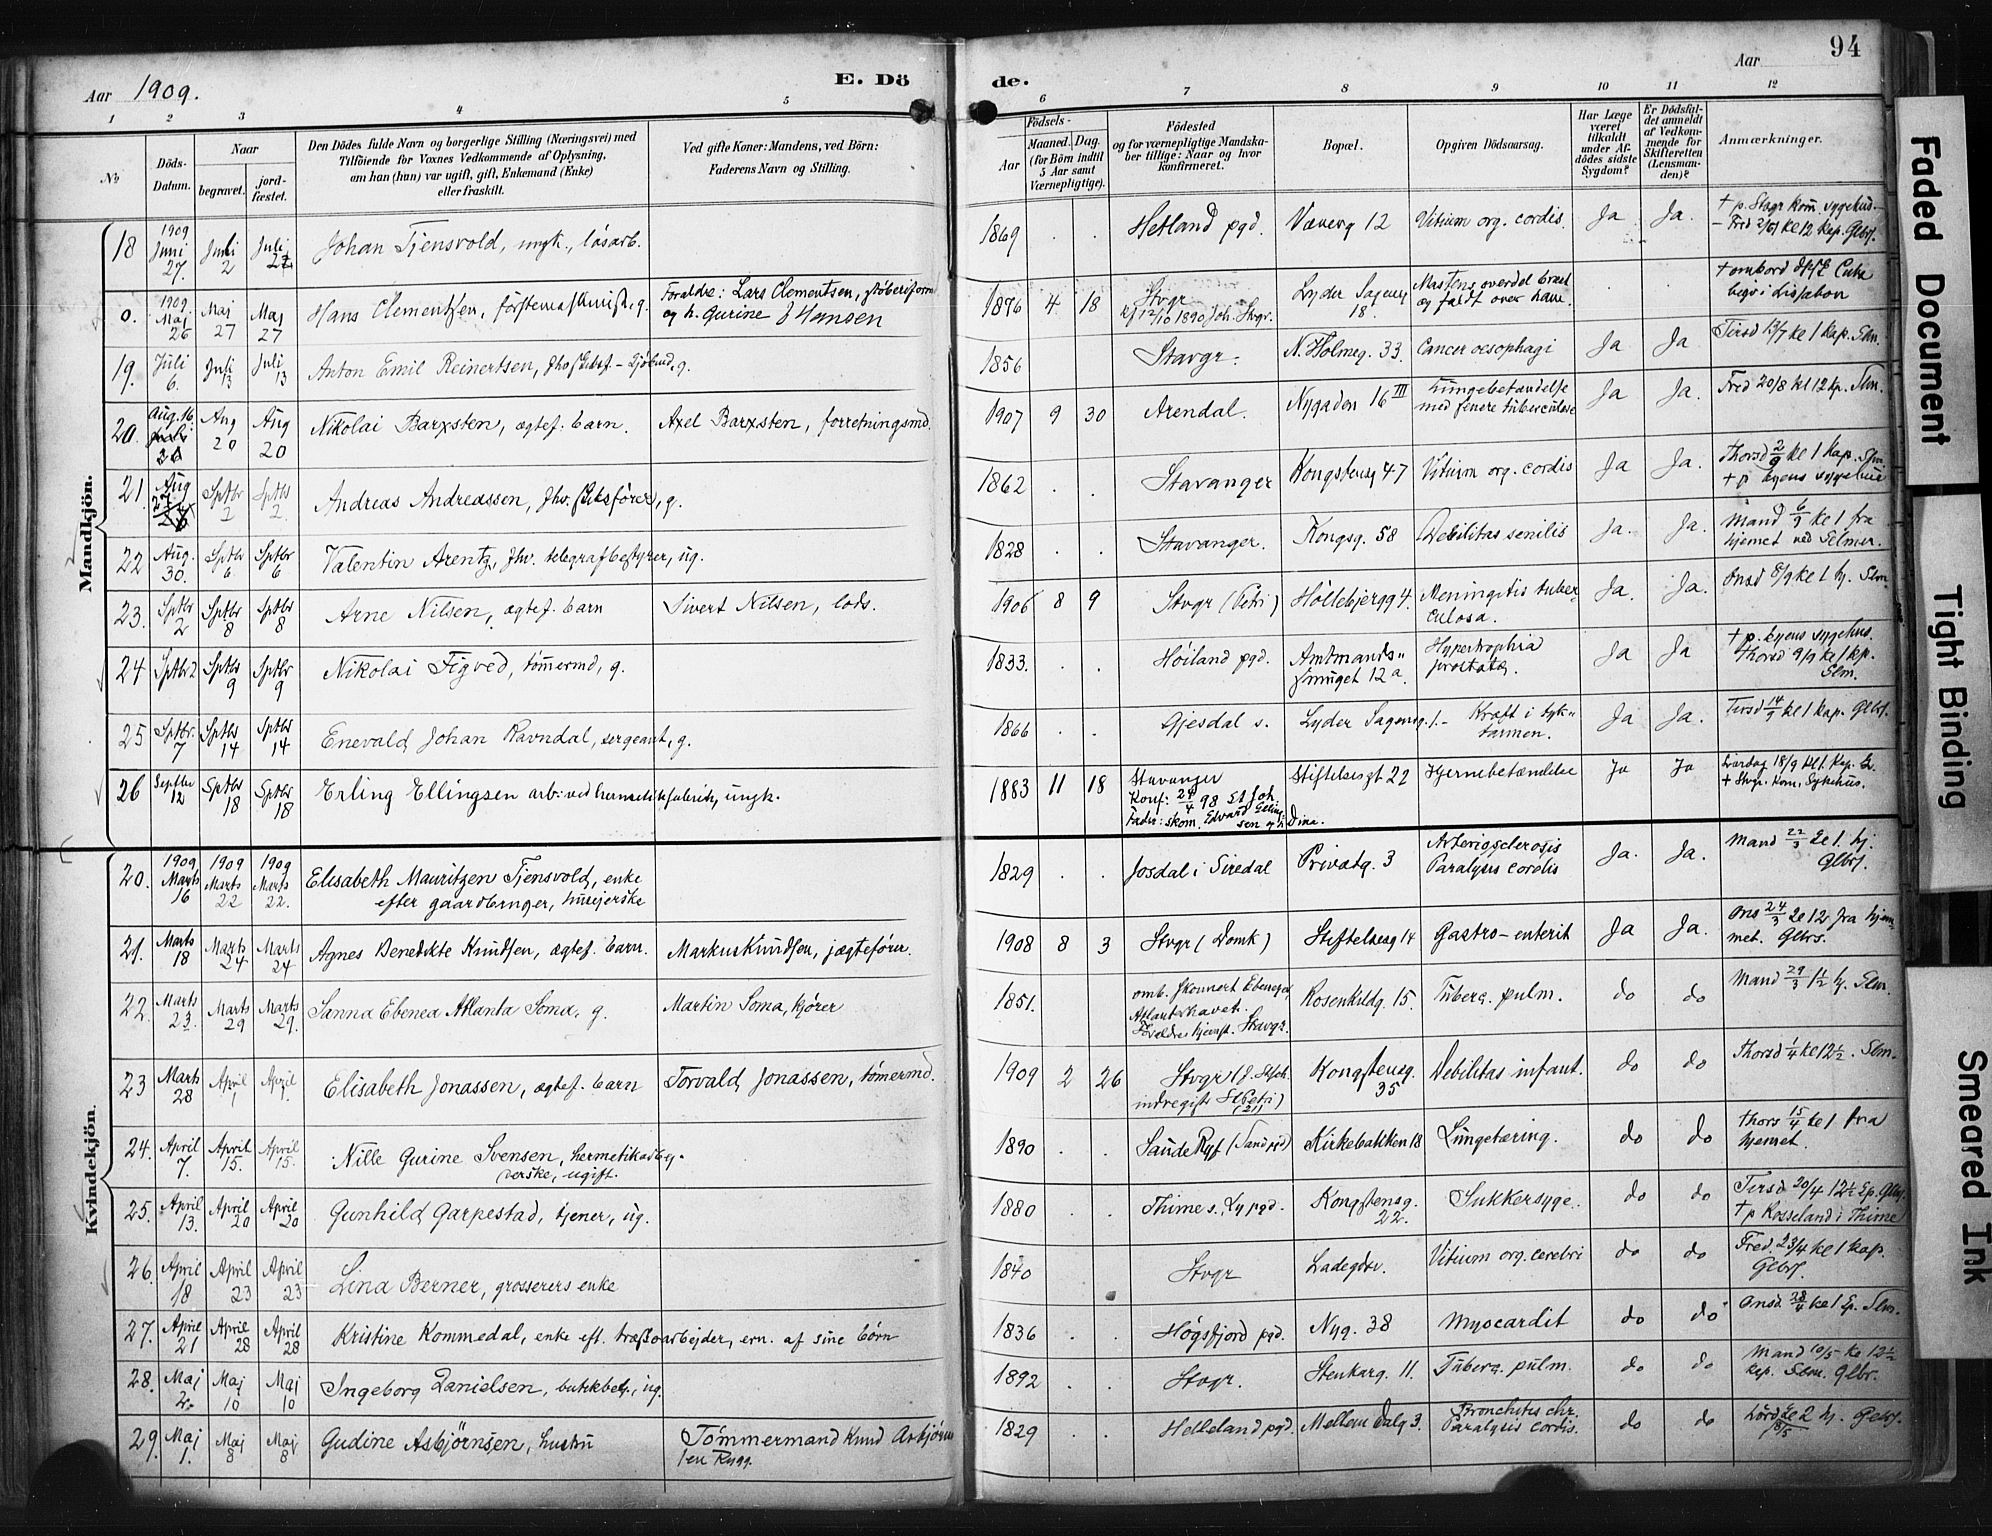 94
Aar 1909.
E. Dö de.
Aar
1 2 3 4 5 6 7 8 9 10 11 12
No
Döds-Datum.
Naar
begravet. jord-fæstet.
Den Dödes fulde Navn og borgerlige Stilling (Næringsvei) med
Tilföiende for Voxnes Vedkommende af Oplysning,
om han (hun) var ugift, gift, Enkemand (Enke)
eller fraskilt.
Ved gifte Koner: Mandens, ved Börn:
Faderens Navn og Stilling.
Födsels-
Aar Maaned. Dag.
(for Börn indtil 5 Aar samt Værnepligtige).
Födested
og for værnepligtige Mandska-
ber tillige: Naar og hvor
konfirmeret.
Bopæl.
Opgiven Dödsaarsag.
Har Læge været tilkaldt under Af-dödes sidste Sygdom?
Er Dödsfal-det anmeldt af Vedkom-mende for Skifteretten (Lensman-den)?
Anmærkninger.
Mandkjön.
18 1909 Juni 27. Juli 2 Juli 2 Johan Tjensvold, ungk., løsarb. 1869 . . Hetland pgd. Væverg 12 Vitium org. cordis. Ja Ja.
0. 1909 Maj 26 Maj 27 Maj 27 Hans Clementsen, førstemaskinist, g. Foraldre: Lars Clementsen, og h. Gurine J Hansen 1876 4 18 Stvgr 12/10 1890 Joh. Stvgr. Lyder Sageng 18. Mastens overdel brast og faldt over ham. . . †ombord d/s/s Cuba begr i Lissabon
19. Juli 6. Juli 13 Juli 13 Anton Emil Reinertsen, 1856 Stavgr. N. Holmeg. 33. Cancer oesophagi Ja Ja Tirsd 13/7 kl 1 kap. Slm.
20. Aug. 16 Aug 20 Aug 20 Nikolai Barxsten, ægtef. barn. Axel Barxsten, forretningsmd. 1907 9 30 Arendal. Nygaden 16 III Lungebetændelse med senere tuberculose Ja Ja. Fred 20/8 kl 12 kp. Slm.
21. Aug 27 Septbr 2 Septbr 2. Andreas Andreassen, fhv. skibsfører, g. 1862 . . Stavanger Kongstensg 47 Vitium org. cordis Ja Ja. Thorsd 2/9 kl 1 kap. Slm † p byens sygehus
22 Aug. 30. Septbr 6 Septbr 6 Valentin Arentz, fhv. telegrafbestyrer, ug. 1828 . . Stavanger. Kongsg. 58 Debilitas senilis Ja. Ja. Mand 6/9 kl 1 fra hjemet ved Selmer.
23. Septbr 2 Septbr 8 Septbr 8 Arne Nilsen, ægtef. barn Sivert Nilsen, lods. 1906 8 9 Stvgr (Petri) Hollebjergg 4. Meningitis tuber-culosa. Ja. Ja. Onsd 8/9 kl 1 hj. Slm.
24 Septbr 2 Septbr 9 Septbr 9 Nikolai Figved, tømermd, g. 1833. . . Høiland pgd. Amtmands-smuget 12 a. Hypertrophia prostatæ. Ja Ja † p. byens sygehus. Thorsd 9/9 kl 1 kp. Slm.
25 Septbr. 7 Septbr 14 Septbr 14 Enevald Johan Ravndal, sergeant, g. 1866 . . Gjesdal s. Lyder Sagensg. 1.- Kræft i tyk-tarmen. Ja Ja. Tirsd 14/9 kl 1 kap. Glbrs.
26 Septbr 12 Septbr 18 Septbr 18 Erling Ellingsen arb: ved hermetikfabrik, ungk. 1883 11 18 Stavanger Konf: 24/4 98 St Joh. Fader: skom. Edvard Elling-sen og h Dina. Stiftelsesgt 22 Hjernebetændelse Ja Ja Lørdag 18/9 kl 1. Kap. † Stvgr. Kom. Sykehus.
Kvindekjön.
20. 1909 Marts 16 1909 Marts 22 1909 Marts 22. Elisabeth Mauritzen Tjensvold, enke efter gaardbruger, huseierske 1829 . . Josdal i Siredal Privatg. 3 Arteriosclerosis Paralysis cordis Ja. Ja. Mand 22/3 kl 1. hj. Glbrs.
21. Marts 18 Marts 24 Marts 24 Agnes Benedikte Knudsen, ægtef. barn. Markus Knudsen, jægtefører. 1908 8 3 Stvgr (Domk) Stiftelsesg 14 Gastro-enterit Ja Ja. Ons 24/3 kl 12 fra hjem-met. Glbrs.
22. Marts 23. Marts 29 Marts 29. Sanna Ebenea Atlanta Soma, g. Martin Soma, kjører 1851. omb. skonnert Ebenezer, Atlanterhavet. Forældres hjemst. Stavgr. Rosenkildg. 15. Tuberc. pulm. do do Mand 29/3 1 1/2 hj. Slm.
23 Marts 28 April 1 April 1. Elisabeth Jonassen, ægtef. barn Torvald Jonassen, tømermd. 1909 2 26 Stvgr (f. St Joh. indregistr St Petri) (21) Kongstensg. 35 Debilitas infant. do do Thorsd 1/4 kl 12 1/2. Slm.
24. April 7. April 15. April 15. Nille Gurine Svensen, hermetikarbej-derske, ugift. 1890 . . Saude Ryf (Sand pgd) Kirkebakken 18 Lungetæring. do do Thors 15/4 kl 1 fra hjemet.
25. April 13. April 20 April 20 Gunhild Garpestad, tjener, ug. 1880 . . Thime s. Ly pgd. Kongstensg. 22. Sukkersyge. do do Tirsd 20/4 12 1/2 Ep. Glbrs. † p Kosseland i Thime
26. April 18 April 23 April 23 Lina Berner, grosserers enke 1840 Stvgr Ladegdsv. Vitium org. cerebri do do Fred. 23/4 kl 1 kap. Glbrs.
27. April 21 April 28 April 28 Kristine Kommedal, enke eft. træskoarbejder, ern. af sine børn 1836 . . Høgsfjord pgd. Nyg. 38 Myocardit do do Onsd 28/4 kl 1 Ep. Slm.
28. Maj 2. Maj 10 Maj 10 Ingeborg Danielsen, butikbetj., ug. 1892 . . Stvgr. Stenkarg. 11. Tuberc. pulm. do do Mand 10/5 kl 12 1/2 kap. Slm. Glbr.
29. Maj 1. Maj 8 Maj 8 Gudine Asbjørnsen, hustru Tømmermand Knud Asbjørn-sen Rygg. 1829 . . Helleland pgd. Mellem Dalg 3. Bronchitis chr. Paralysis cordis. do do Lørd kl 2 hj. Glbrs. 8/5
Faded Document
Tight Binding
Smeared Ink